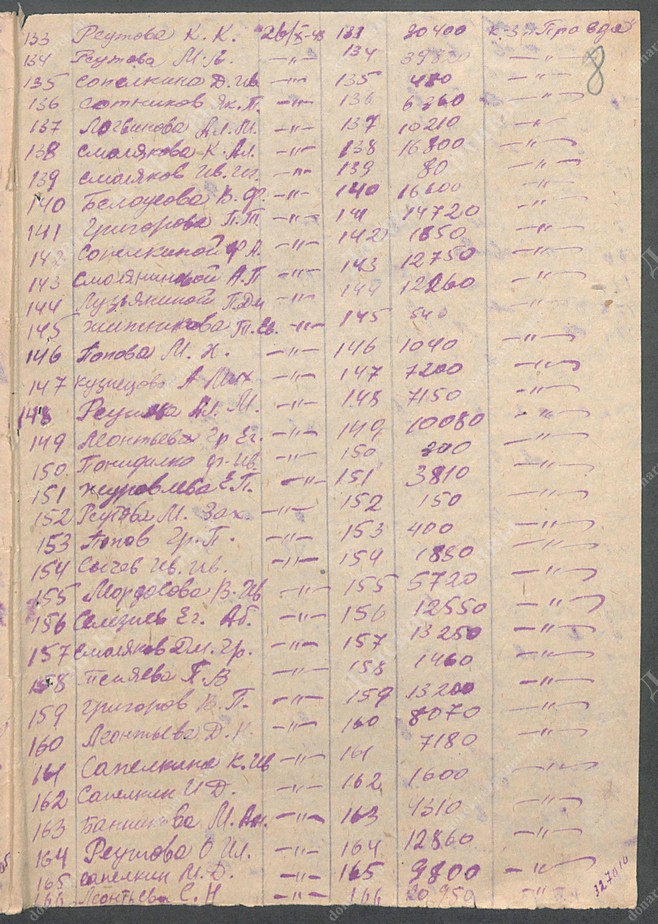 8
133 Реутова К. К. 26/X-43 133 20400 к-з "Правда"
134 Реутова М. В. —"— 134 —"—
135 Сопелкина Д. Ив —"— 135 480 —"—
136 Сотников Як. П. —"— 136 6360 —"—
137 Логвинова Ал. М. —"— 137 10210 —"—
138 Смолякова К. Ал. —"— 138 16800 —"—
139 Смоляков Ив. Иг. —"— 139 80 —"—
140 Белоусова В. Ф. —"— 140 16600 —"—
141 Григорова П. Т —"— 141 14720 —"—
142 Сопелкиной Ф А. —"— 142 1850 —"—
143 А. П —"— 143 12750 —"—
144 Лузьяниной П. Дм —"— 144 12260 —"—
145 Житникова Т. Св. —"— 145 540 —"—
146 Попова М. Н. —"— 146 1040 —"—
147 Кузнецова А Мих —"— 147 7200 —"—
148 Реутова Ал. М. —"— 148 7150 —"—
149 Леонтьева Гр Ег. —"— 149 10080 —"—
150 Ф. Ив. —"— 150 200 —"—
151 Журовлева Е. П. —"— 151 3810 —"—
152 Реутова М. Зах. —"— 152 150 —"—
153 Попов Гр. П. —"— 153 400 —"—
154 Сычев Ив. Ив. —"— 154 1880 —"—
155 Мордосова В. Ив —"— 155 5720 —"—
156 Селезнев Ег. Аб. —"— 156 12550 —"—
157 Смоляков Дм. Гр. —"— 157 13250 —"—
158 Т. В —"— 158 1460 —"—
159 Григоров В. П. —"— 159 13200 —"—
160 Леонтьева Д. К —"— 160 8070 —"—
161 Сапелкина К. Ив —"— 161 7180 —"—
162 Сапелкин И Д. —"— 162 1600 —"—
163 Банникова М. Ан. —"— 163 4310 —"—
164 Реутова О Ил. —"— 164 12860 —"—
165 Сапелкин М. Д. —"— 165 9800 —"—
166 Леонтьева С. Н —"— 166 20950 —"—